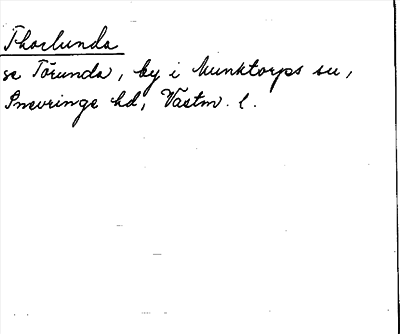 Thorlunda
se Törunda, by i Munktorps sn,
Snevringe hd, Västm. l.